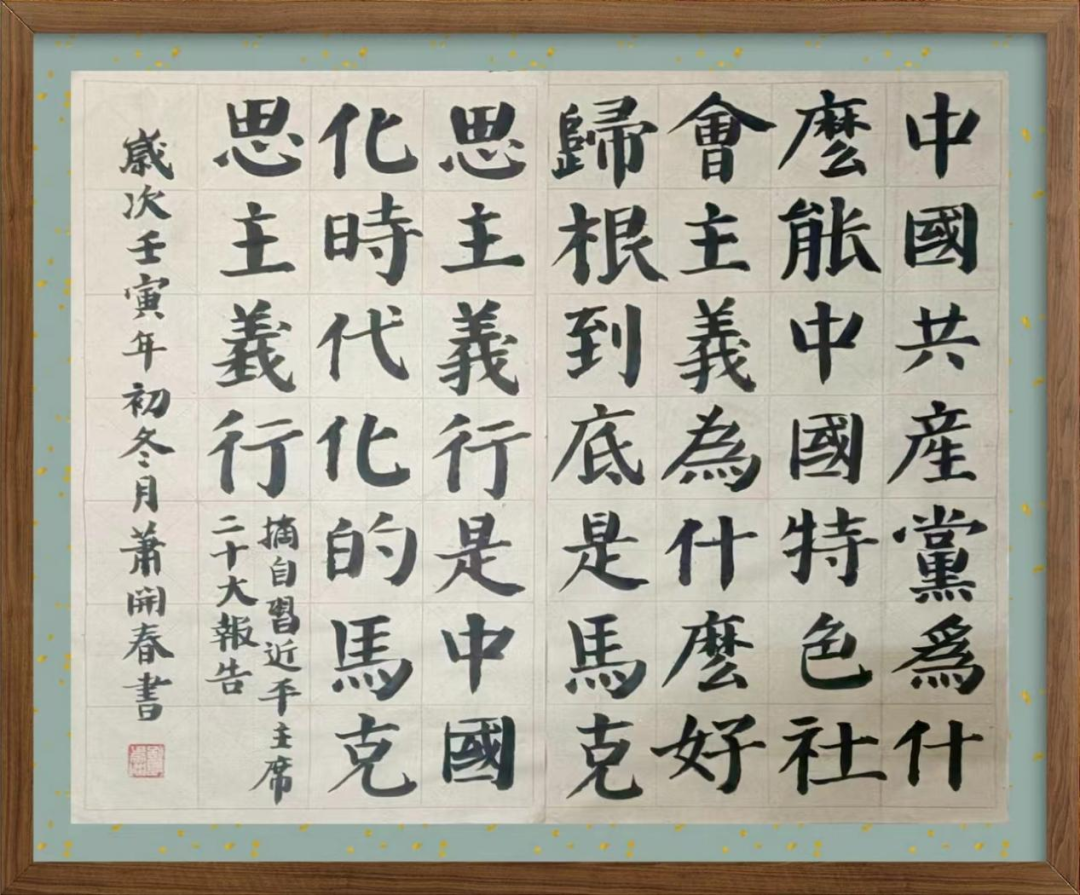 中國共産黨爲什
麼能中國特色社
會主義為什麼好
歸根到底是馬克
思主義行是中國
化時代化的馬克
思主義行
摘自習近平主席
二十大報告
歲次壬寅年初冬月蕭開春書